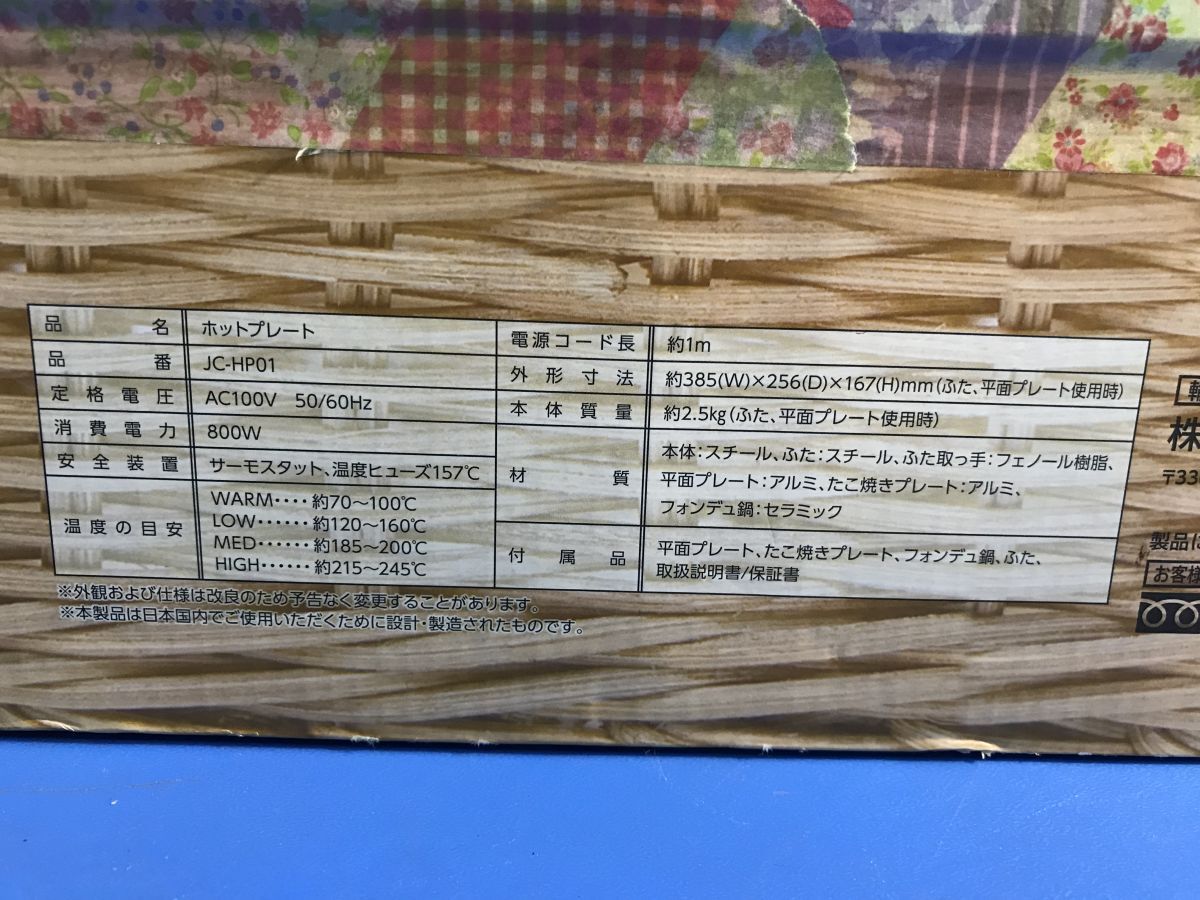 品名 ホットプレート
品番 JC-HP01
定格電圧 AC100V 50/60Hz
消費電力 800W
安全装置 サーモスタット、温度ヒューズ157℃
温度の目安 WARM‥‥約70～100℃
LOW‥‥‥約120～160℃
MED‥‥‥約185～200℃
HIGH‥‥‥約215～245℃
電源コード長 約1m
外形寸法 約385(W)×256(D)×167(H)mm(ふた、平面プレート使用時)
本体質量 約2.5kg(ふた、平面プレート使用時)
材質 本体:スチール、ふた:スチール、ふた取っ手:フェノール樹脂、
平面プレート:アルミ、たこ焼きプレート:アルミ、
フォンデュ鍋:セラミック
付属品 平面プレート、たこ焼きプレート、フォンデュ鍋、ふた、
取扱説明書/保証書
※外観および仕様は改良のため予告なく変更することがあります。
※本製品は日本国内でご使用いただくために設計・製造されたものです。
株
〒33
製品に
お客様